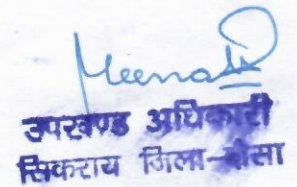 Meena
उपखण्ड अधिकारी
सिकराय जिला-दौसा